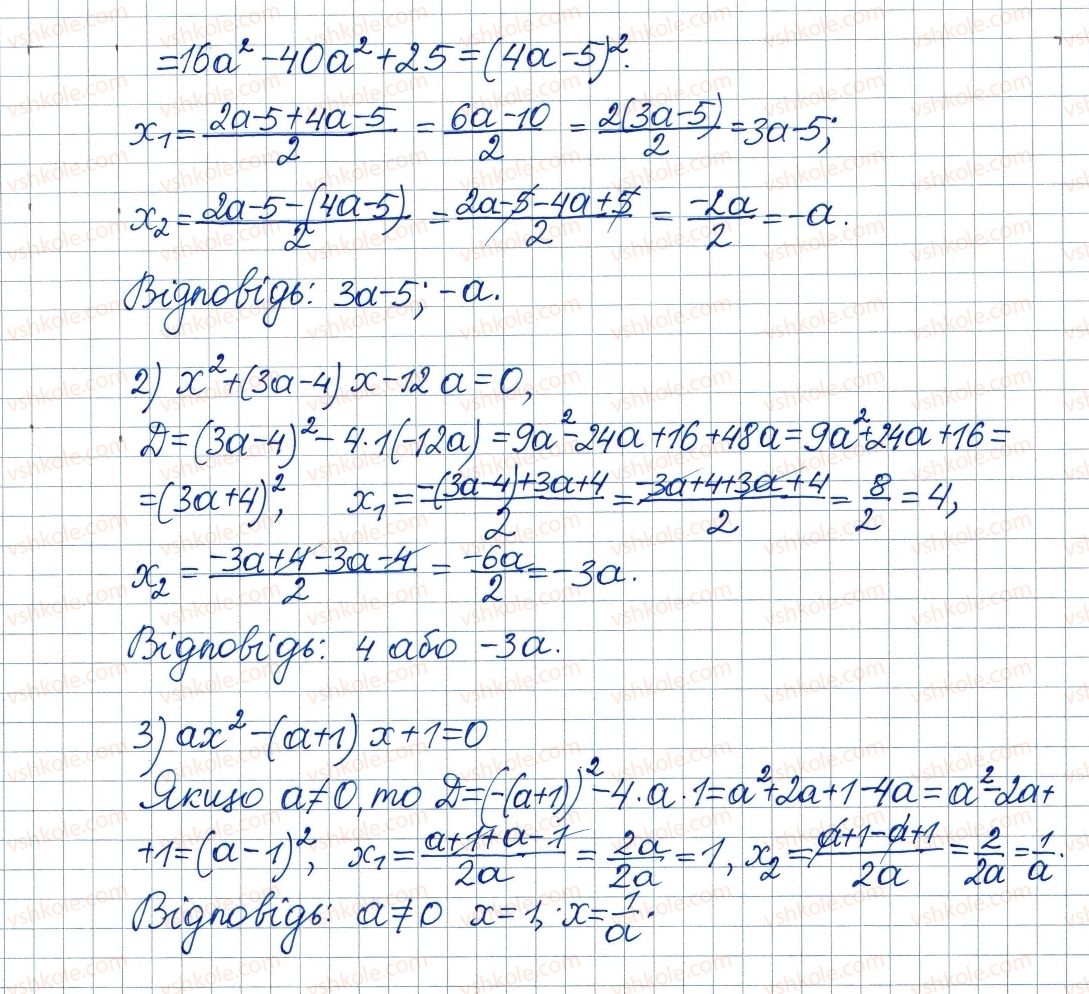 =16a²-40a²+25=(4a-5)².
x₁=(2a-5+4a-5)/2=(6a-10)/2=(2(3a-5))/2=3a-5;
x₂=(2a-5-(4a-5))/2=(2a-5-4a+5)/2=(-2a)/2=-a.
Відповідь: 3a-5; -a.
2) x²+(3a-4)x-12a=0,
Д=(3a-4)²-4·1(-12a)=9a²-24a+16+48a=9a²+24a+16=
=(3a+4)², x₁=(-(3a-4)+3a+4)/2=(-3a+4+3a+4)/2=8/2=4,
x₂=(-3a+4-3a-4)/2=(-6a)/2=-3a.
Відповідь: 4 або -3a.
3) ax²-(a+1)x+1=0
Якщо a≠0, то Д=(-(a+1))²-4·a·1=a²+2a+1-4a=a²-2a+
+1=(a-1)², x₁=(a+1+a-1)/2a=2a/2a=1, x₂=(a+1-a+1)/2a=2/2a=1/a.
Відповідь: a≠0 x=1, x=1/a.